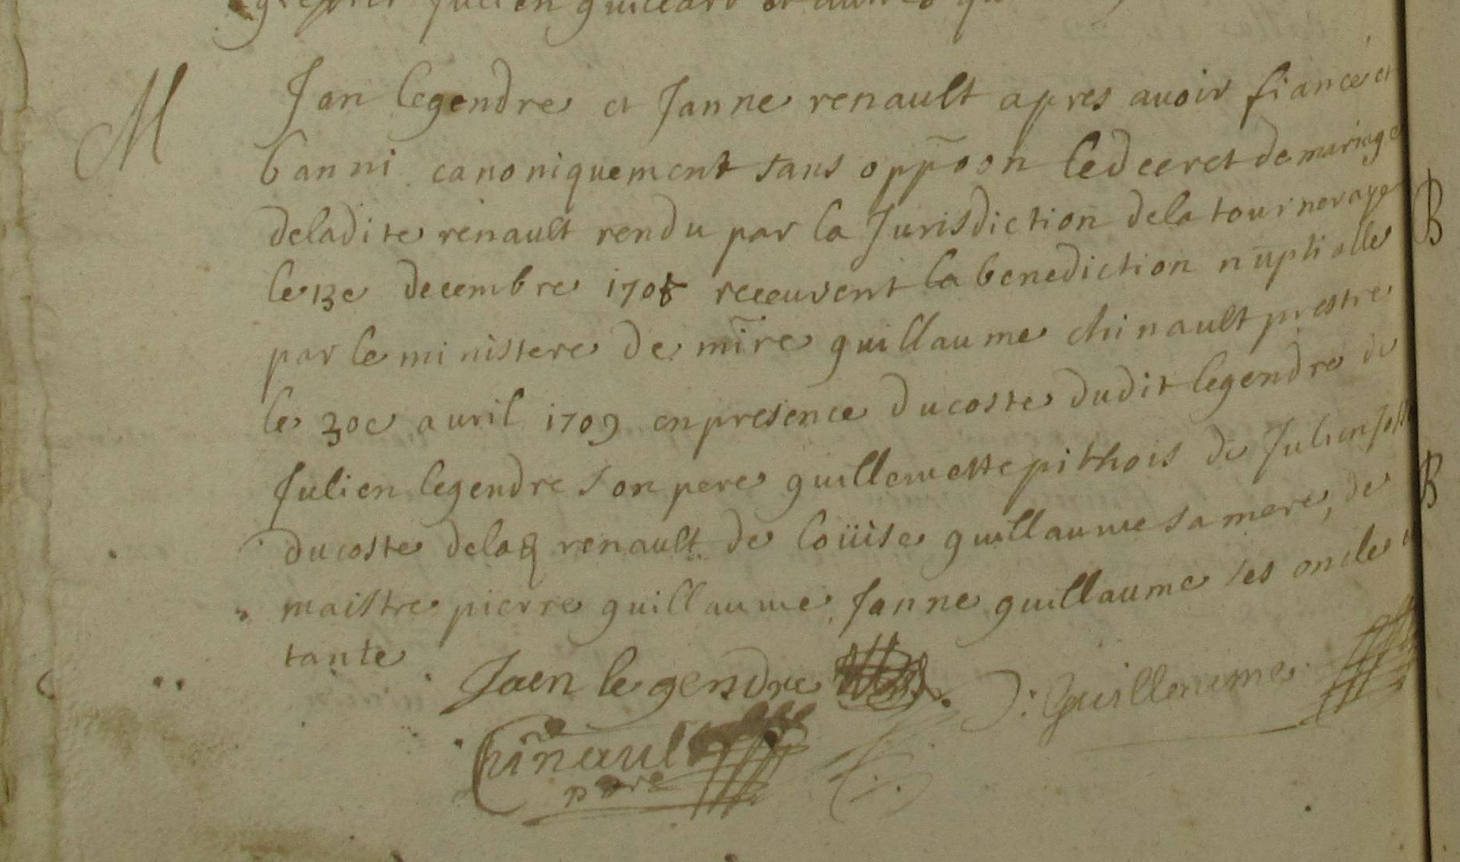 julien guillard et autres
M
Jan legendre et Janne renault apres avoir fiancé et
banni canoniquement sans opp̄oon le decret de mariage
deladite renault rendu par la Jurisdiction dela tourneraye
le 13e decembre 1708 receuvent la benediction nuptialle
par le ministere de mire guillaume chinault prestre
le 30e avril 1709 en presence du coste dudit legendre de
Julien legendre son pere guillemette pithois de Julien
du coste dela renault de Loüise guillaume sa mere, de
maistre pierre guillaume, Janne guillaume ses oncle
tante
Jaen legendre
Guilleaume
Chinault
p̄tre
B
B